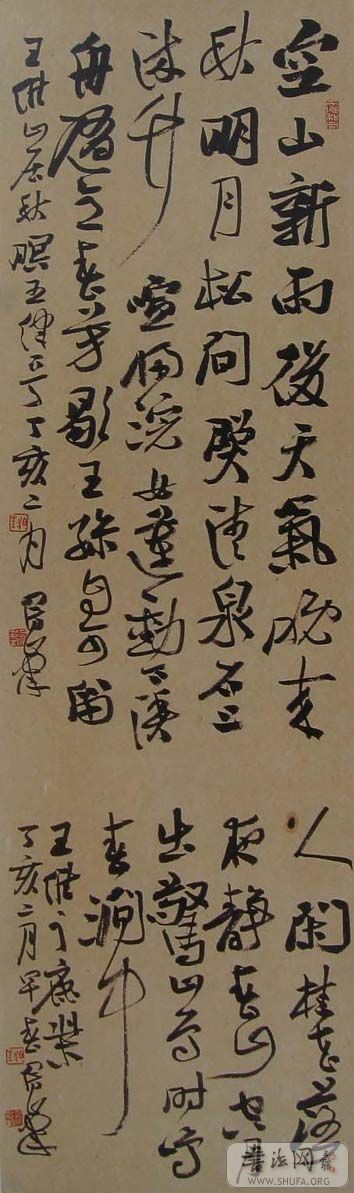 空山新雨後天氣晚来
秋明月松間照清泉石上
流竹喧歸浣女蓮動下漁
舟随意春芳歇王孫自可留
王維山居秋暝五律一首丁亥二月
人閑桂花落
夜静春山空月
出驚山鸟时鸣
春澗中
王維之鹿柴
丁亥二月早春
書法网
WWW.SHUFA.ORG